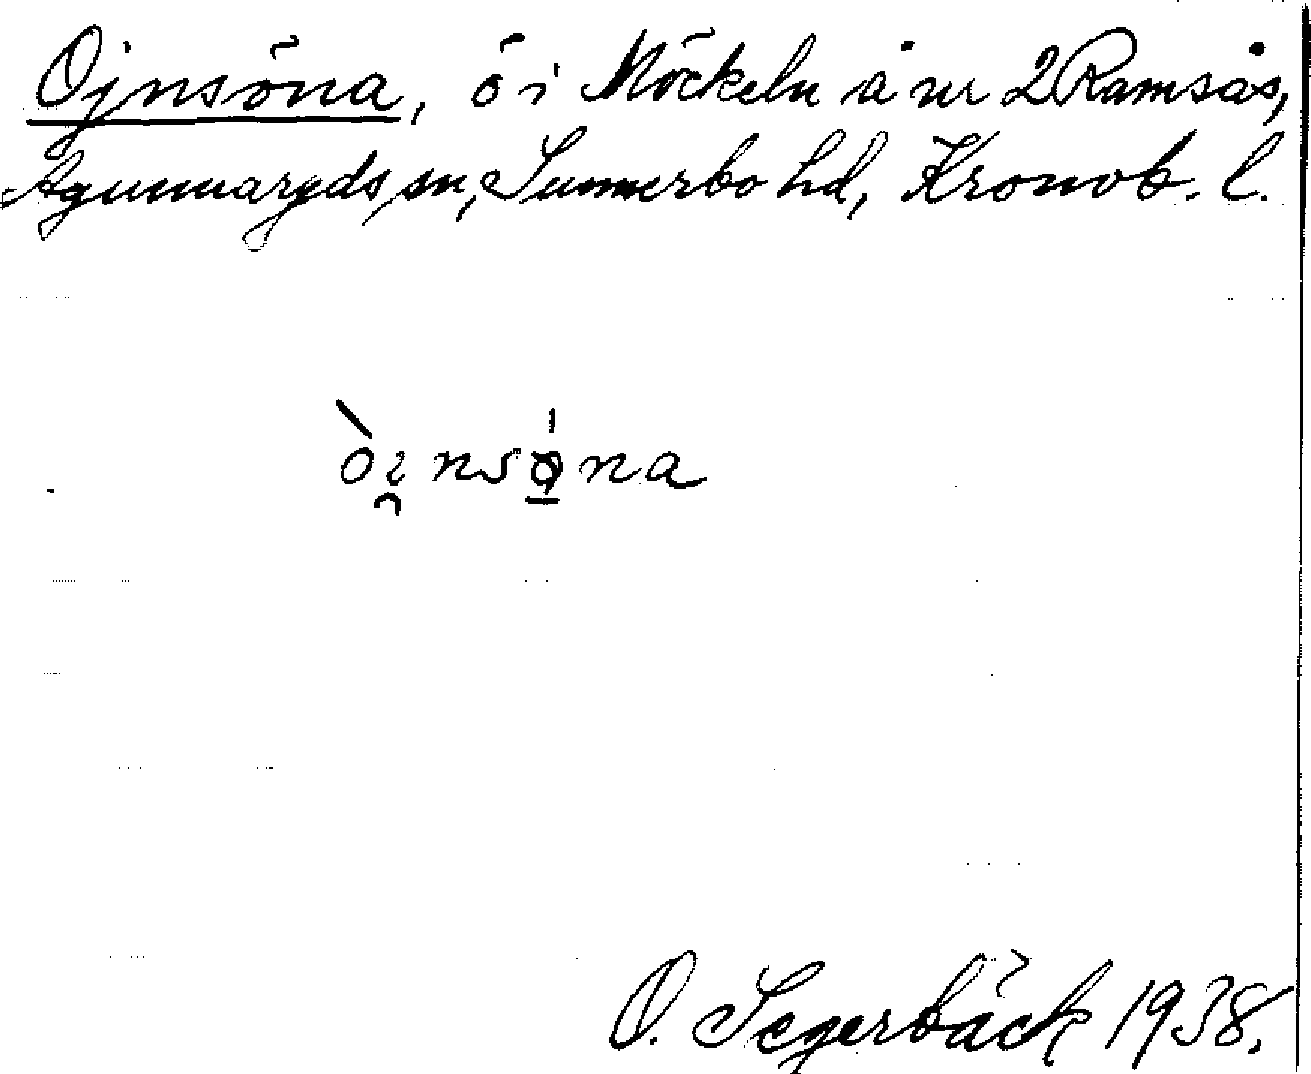 Ojnsöna, ö i Möckeln å nr 2 Ramsås,
Agunnaryds sn, Sunnerbo hd, Kronob. l.
òi̯nsø̱na
O. Segerbäck 1938.